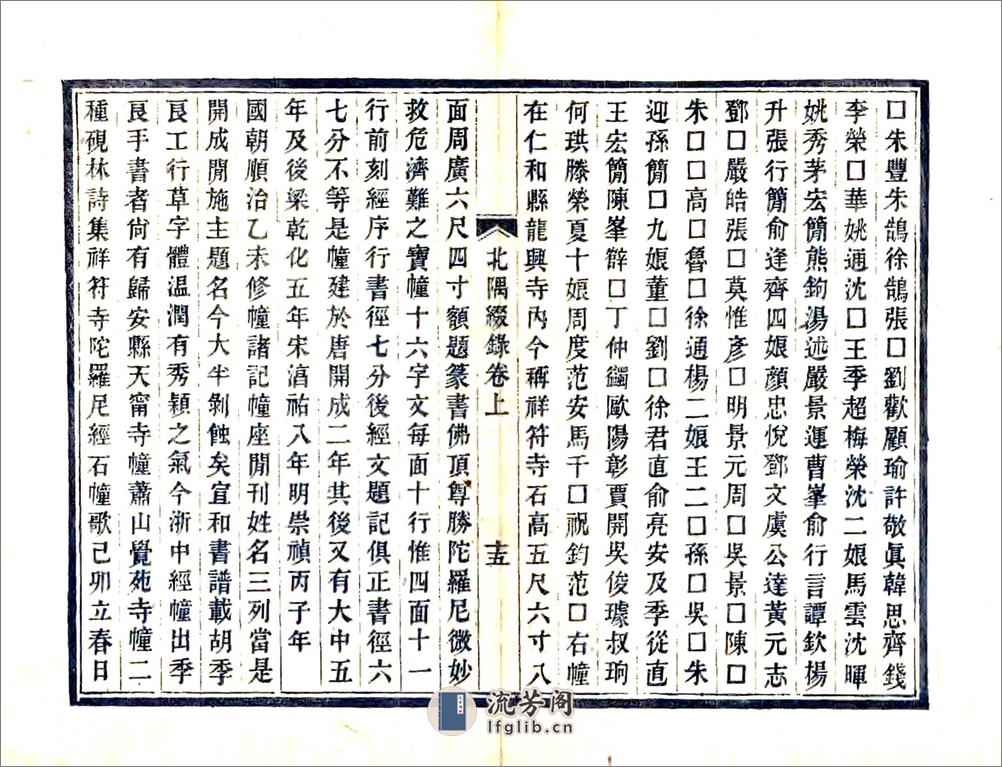 口朱豐朱鵠徐鵠張口劉歡顧瑜許敬眞韓思齊錢
李榮口華姚通沈口王季超梅榮沈二娘馬雲沈暉
姚秀茅宏簡熊鉤湯述嚴景運曹峯俞行言譚欽楊
升張行簡俞逢齊四娘顔忠悅鄧文虞公達黃元志
鄧口嚴皓張口莫惟彥口明景元周口吳景口陳口
朱口口高口口魯口口徐通楊二娘王二口孫口吳口朱
迎孫簡口九娘董口劉口徐君直俞亮安及季從直
王宏簡陳峯辥口丁仲鐲歐陽彰賈開吳俊璩叔珦
何珙滕榮夏十娘周度范安馬千口祝鈞范口右幢
在仁和縣龍興寺內今稱祥符寺石高五尺六寸八
北隅綴錄卷上
十五
面周廣六尺四寸額題篆書佛頂尊勝陀羅尼微妙
救危濟難之寶幢十六字文每面十行惟四面十一
行前刻經序行書徑七分後經文題記俱正書徑六
七分不等是幢建於唐開成二年其後又有大中五
年及後梁乾化五年宋湻祐八年明崇禎丙子年
國朝順治乙未修幢諸記幢座閒刊姓名三列當是
開成閒施主題名今大半剝蝕矣宜和書譜載胡季
良工行草字體溫潤有秀穎之氣今浙中經幢出季
良手書者尙有歸安縣天甯寺幢蕭山覺苑寺幢二
種硯林詩集祥符寺陀羅尼經石幢歌己卯立春日
流芳阁
lfglib.cn